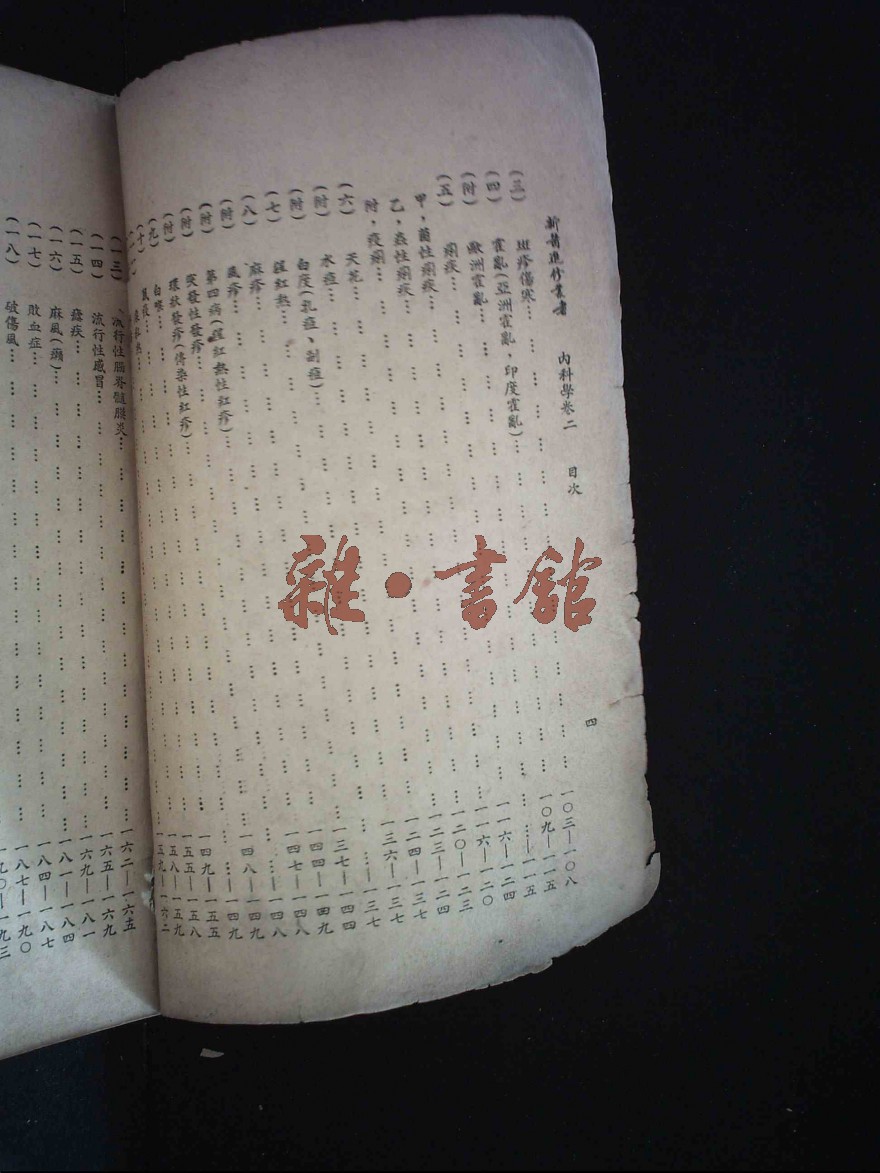 新醫進修叢書 內科學卷二 目次 四
(三) 斑疹傷寒…………一〇三—一〇八
(四) 霍亂(亞洲霍亂，印度霍亂)…………一〇九—一一五
(附) 歐洲霍亂…………一一五
(五) 痢疾…………一一六—一二四
甲，菌性痢疾…………一一六—一二〇
乙，蟲性痢疾…………一二〇—一二三
附，疫痢…………一二三—一二四
(六) 天花…………一二四—一三七
(附) 水痘…………一三六—一三七
(附) 白痘(乳痘、副痘)…………一三七
(七) 猩紅熱…………一三七—一四四
(八) 麻疹…………一四四—一四九
(附) 風疹…………一四七—一四八
(附) 第四病(猩紅熱性紅疹)…………一四八
(附) 突發性發疹…………一四八—一四九
(附) 環狀發疹(傳染性紅疹)…………一四九
(九) 白喉…………一四九—一五五
(十) 鼠疫…………一五五—一五八
熱…………一五八—一五九
一五九—一六二
(一三) 流行性腦脊髓膜炎…………一六二—一六五
(一四) 流行性感冒…………一六五—一六九
(一五) 瘧疾…………一六九—一八一
(一六) 麻風(癩)…………一八一—一八四
(一七) 敗血症…………一八四—一八七
(一八) 破傷風…………一八七—一九〇
雜·書館